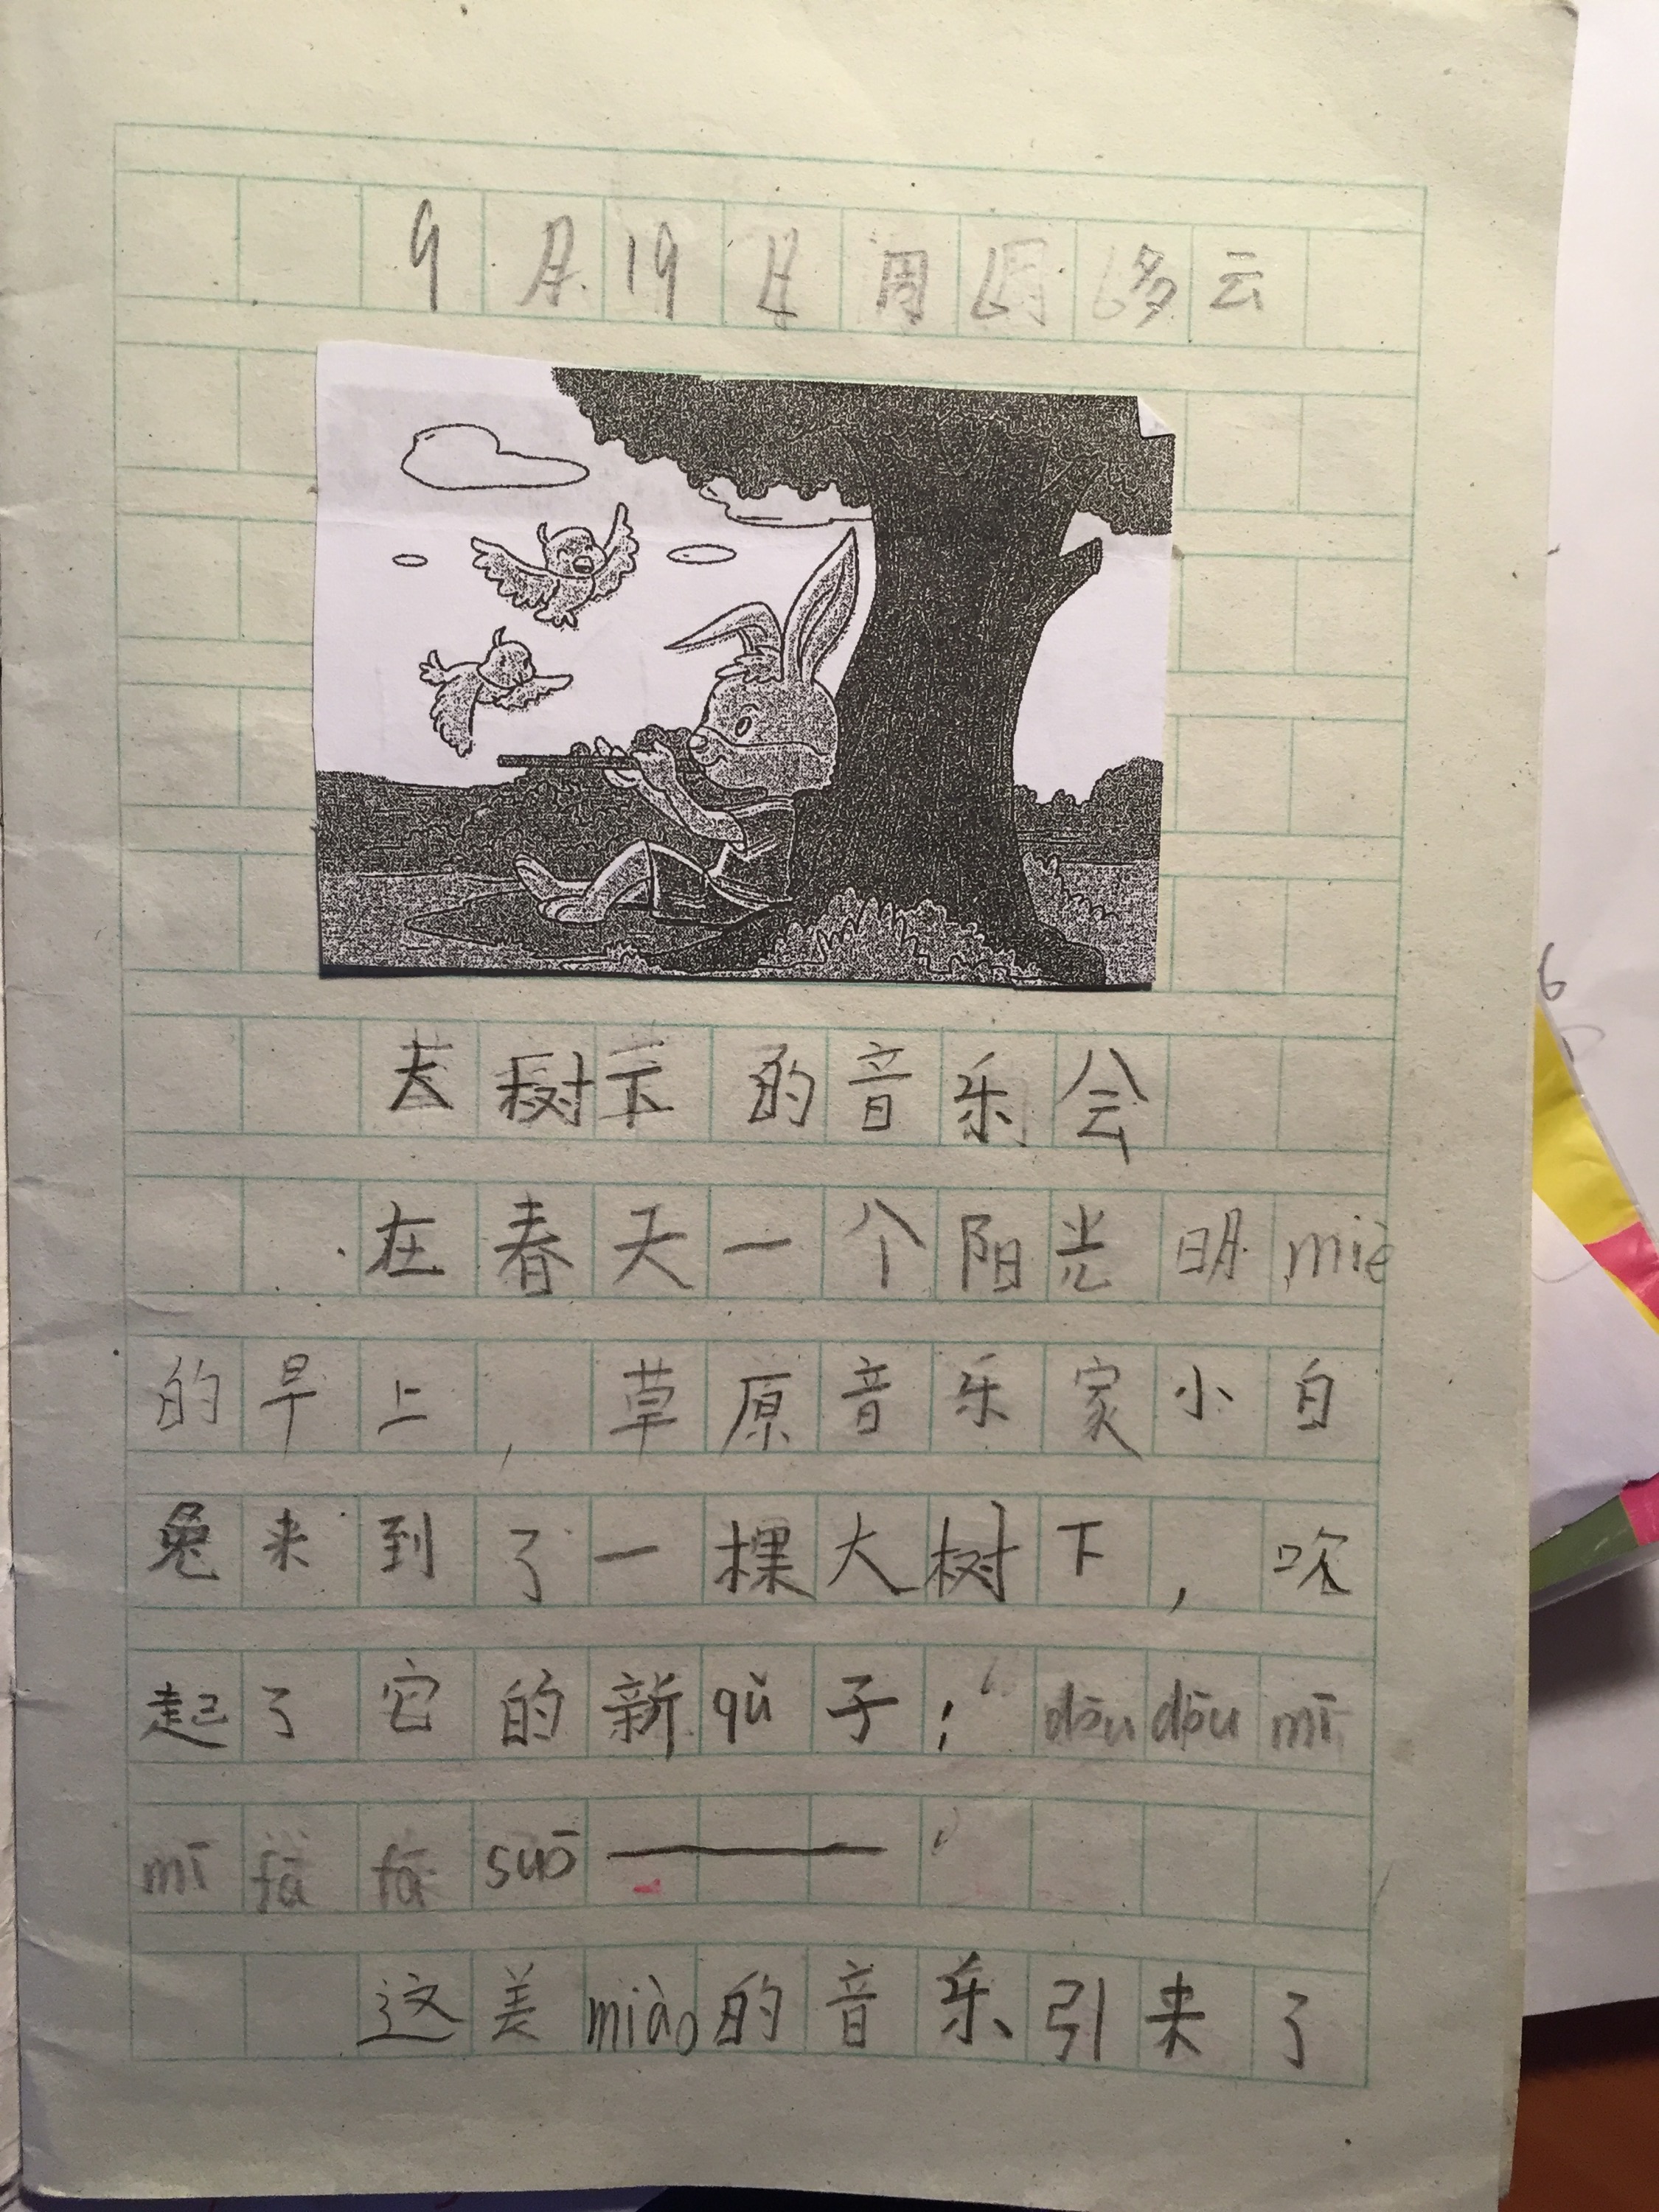 9月19日周6多云
大树下的音乐会
在春天一个阳光明miè
的早上，草原音乐家小白
兔来到了一棵大树下，吹
起了它的新qǔ子：dōu dōu mī
mī fā fā suō———
这美miào的音乐引来了
6